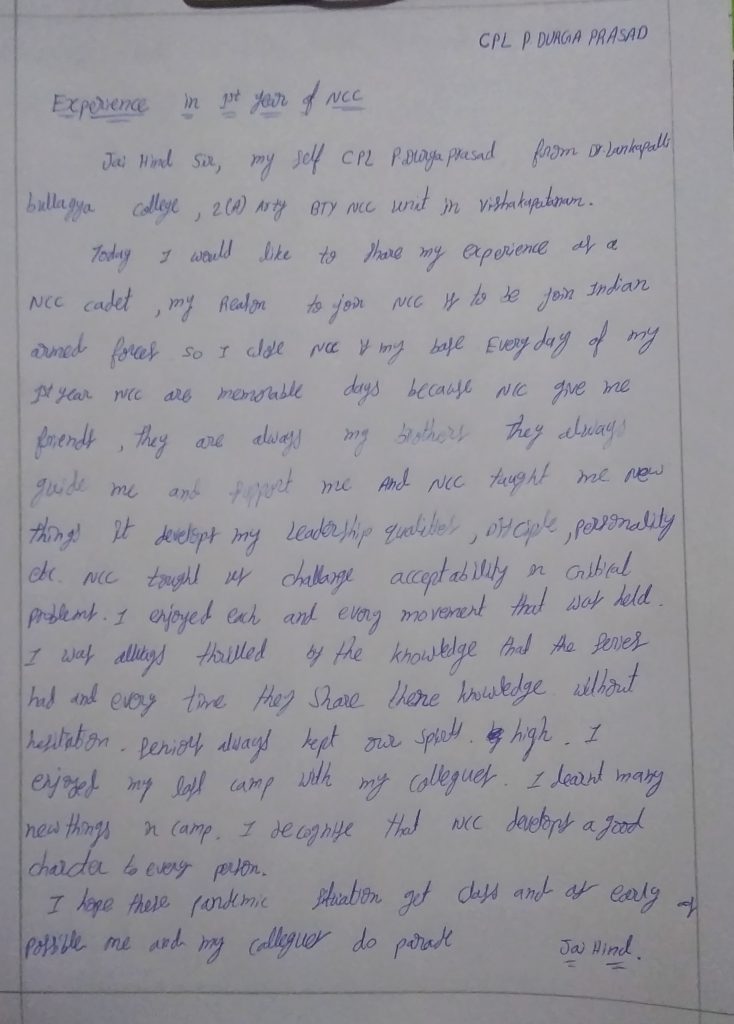 CPL P DURGA PRASAD
Experience in 1st year of NCC
Jai Hind Sir, my self CPL P.Durga prasad from Dr.Lankapalli
bullayya college, 2(A) Arty BTY NCC unit in vishakapatanam.
Today I would like to share my experience as a
NCC cadet, my Reason to join NCC is to be join Indian
armed forces so I NCC is my base Every day of my
1st year NCC are memorable days because NCC give me
friends, they are always my brothers they always
guide me and support me And NCC taught me new
things It develops my Leadership qualities, , personality
etc. NCC tought us challange acceptability in critical
problems. I enjoyed each and every movement that was held.
I was always thrilled by the knowledge that the
had and every time they share knowledge without
hesitation. seniors always kept our high. I
enjoyed my last camp with my collegues. I learnt many
new things in camp. I recognise that NCC develops a good
to every person.
I hope these pandemic situation get and as early as
possible me and my collegues do parade
Jai Hind.